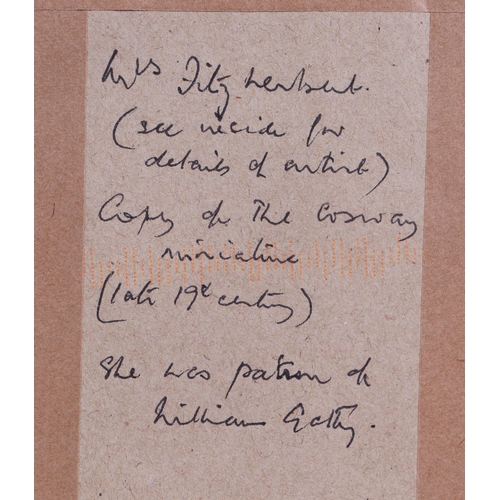 Mrs Fitzherbert.
(see inside for
details of artist)
Copy of the Cosway
miniature
(late 19th century)
She was patron of
William